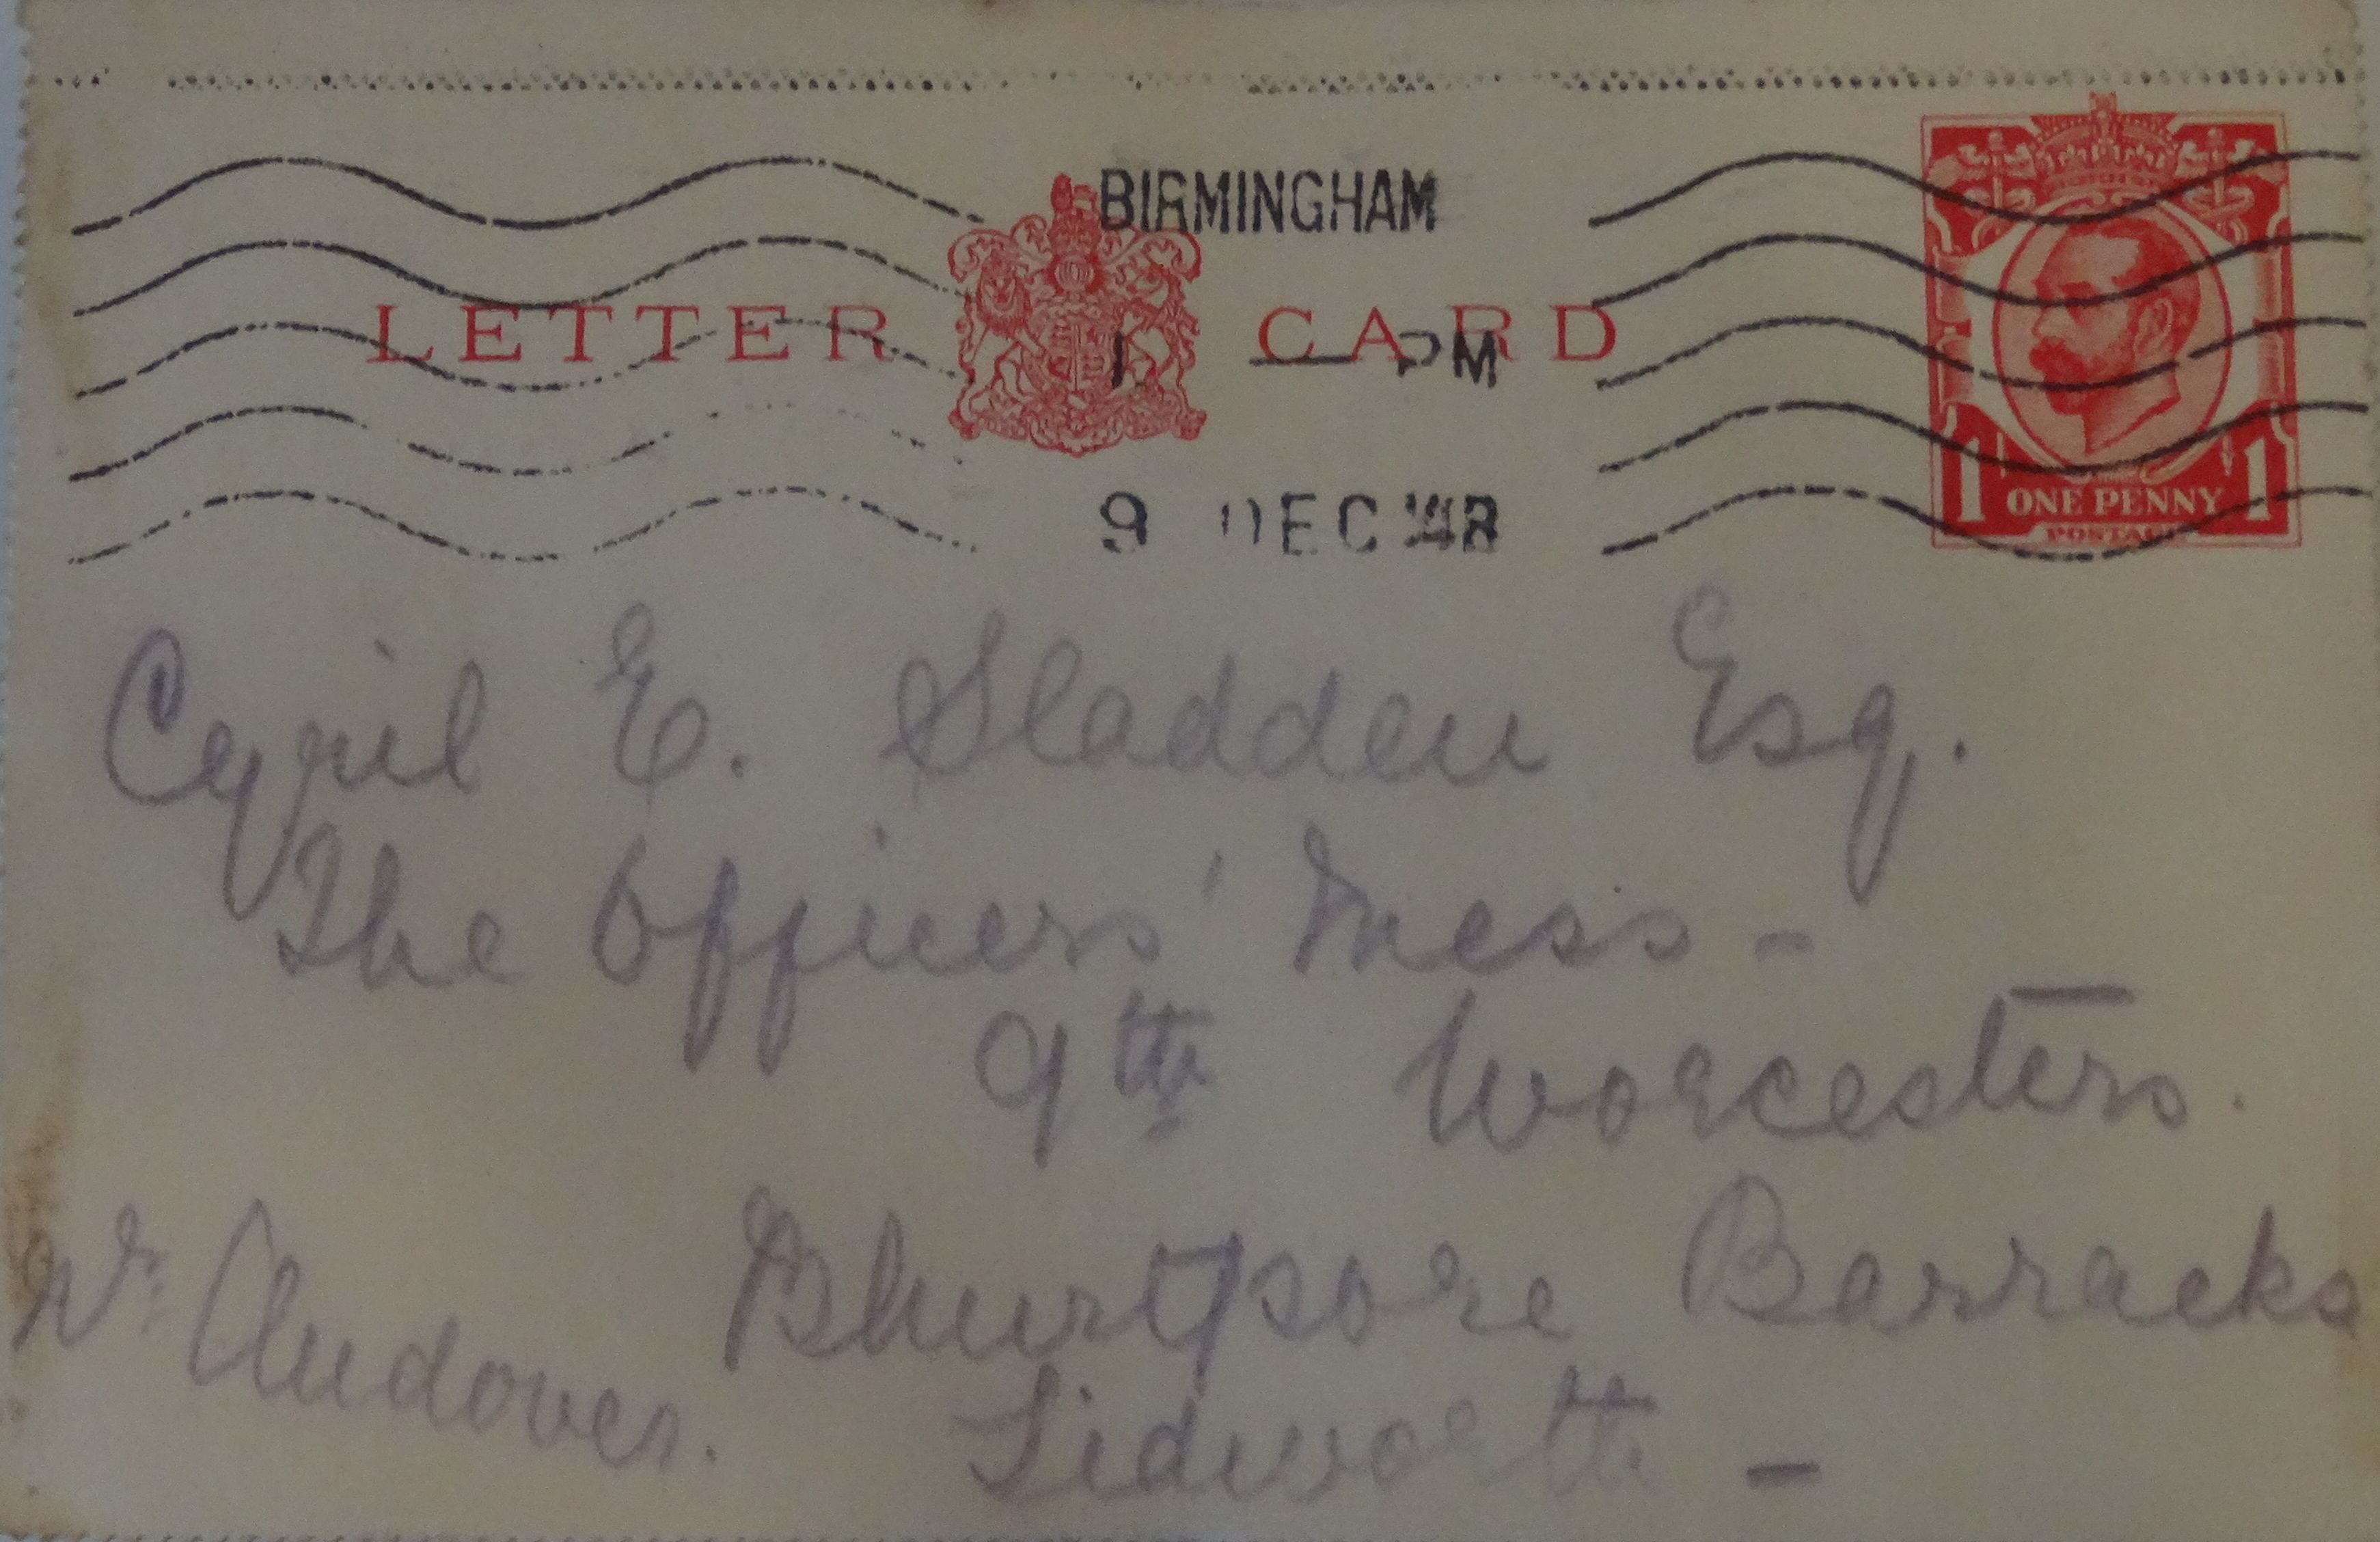 BIRMINGHAM
LETTER CARD
1 — PM
9 DEC
1 ONE PENNY 1
POSTAGE
Cyril E. Sladden Esq.
The Officers' Mess –
9th Worcesters.
Bhurtpore Barracks
Nr Andover. Tidworth –